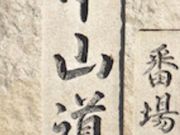 中山道
番場